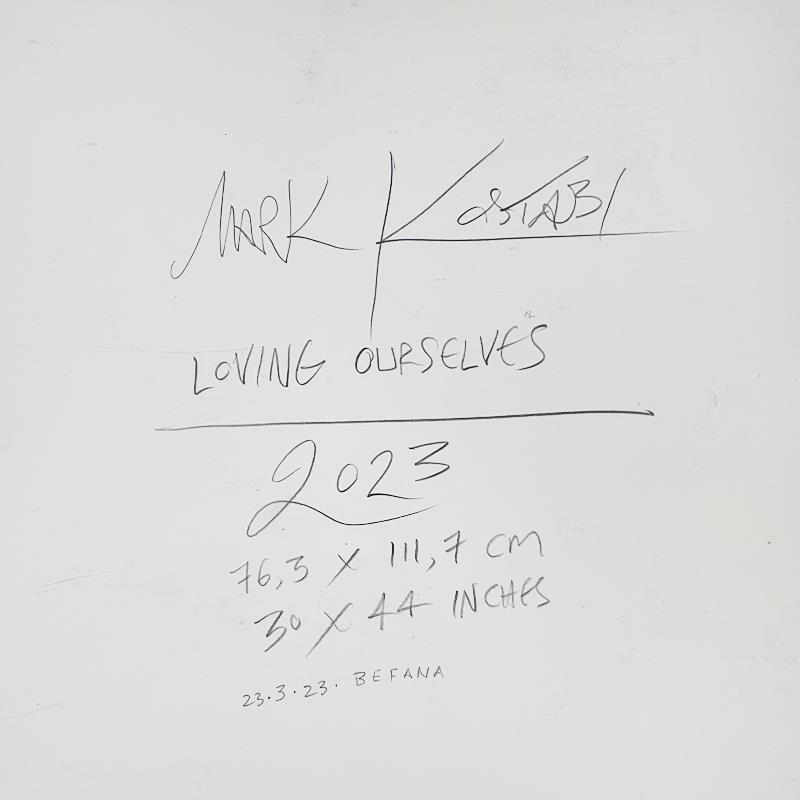 MARK KOSTABI
LOVING OURSELVES
2023
76,3 x 111,7 cm
30 x 44 INCHES
23.3.23. BEFANA